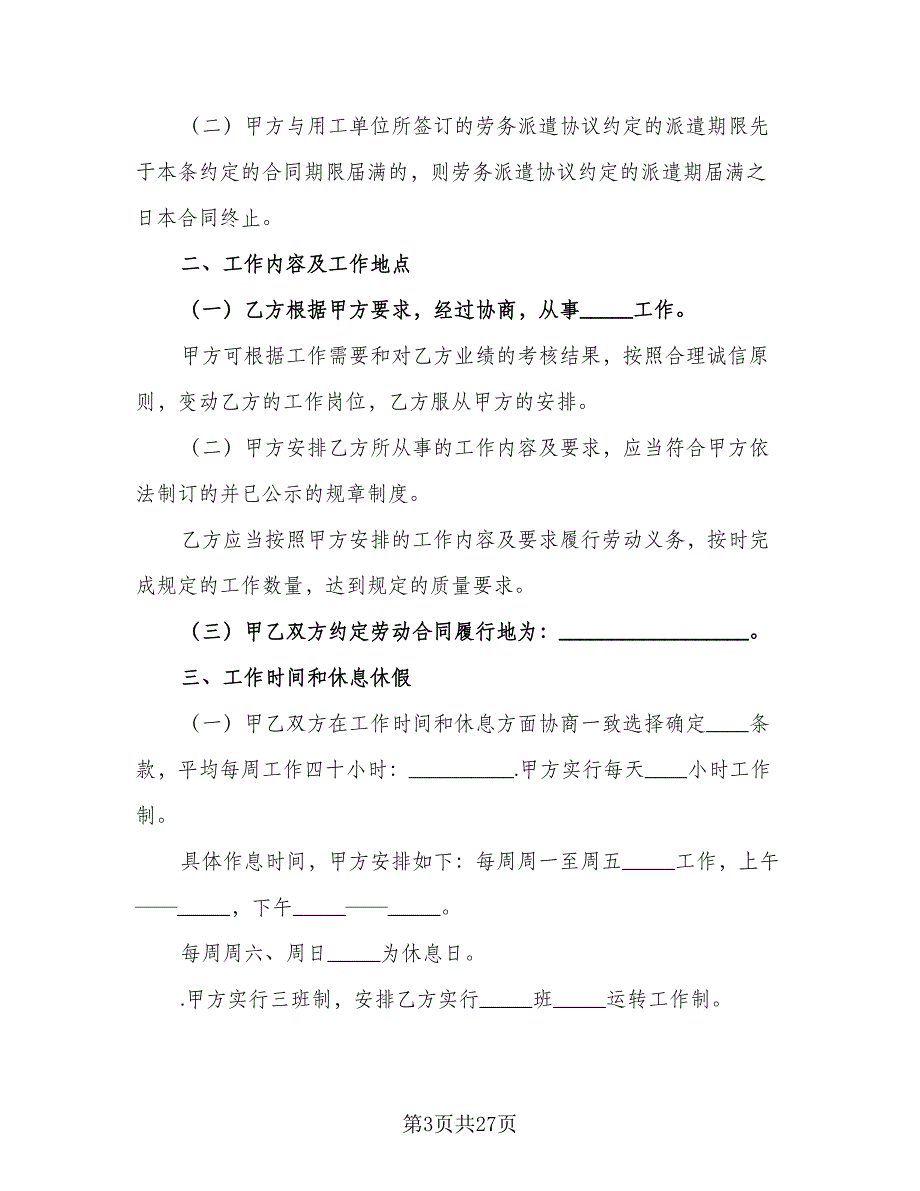 （二）甲方与用工单位所签订的劳务派遣协议约定的派遣期限先
于本条约定的合同期限届满的，则劳务派遣协议约定的派遣期届满之
日本合同终止。
二、工作内容及工作地点
（一）乙方根据甲方要求，经过协商，从事_____工作。
甲方可根据工作需要和对乙方业绩的考核结果，按照合理诚信原
则，变动乙方的工作岗位，乙方服从甲方的安排。
（二）甲方安排乙方所从事的工作内容及要求，应当符合甲方依
法制订的并已公示的规章制度。
乙方应当按照甲方安排的工作内容及要求履行劳动义务，按时完
成规定的工作数量，达到规定的质量要求。
（三）甲乙双方约定劳动合同履行地为：__________________。
三、工作时间和休息休假
（一）甲乙双方在工作时间和休息方面协商一致选择确定____条
款，平均每周工作四十小时：__________.甲方实行每天____小时工作
制。
具体作息时间，甲方安排如下：每周周一至周五_____工作，上午
——_____，下午_____——_____。
每周周六、周日_____为休息日。
.甲方实行三班制，安排乙方实行_____班_____运转工作制。
第3页共27页